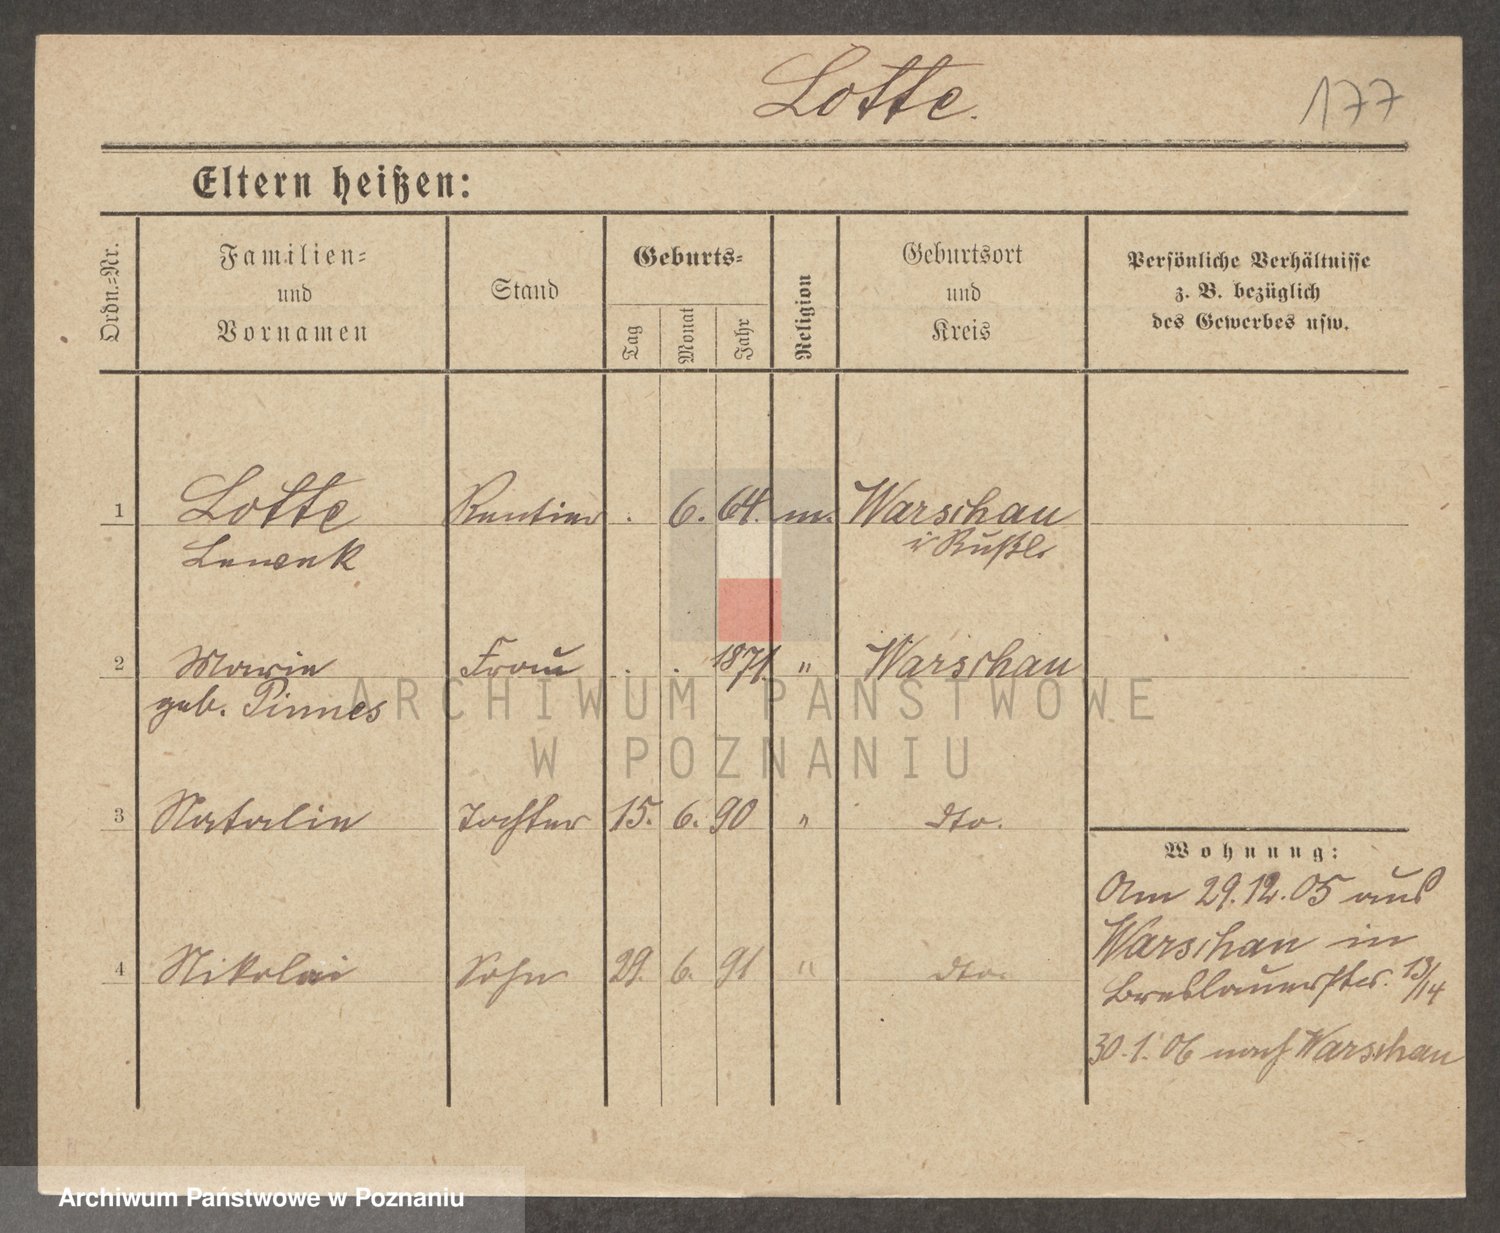 Lotte.
177
Eltern heißen:
Ordn.-Nr.
Familien-
und
Vornamen
Stand
Geburts-
Tag
Monat
Jahr
Religion
Geburtsort
und
Kreis
Persönliche Verhältnisse
z. B. bezüglich
des Gewerbes usw.
1 Lotte Rentier . 6. 64. m. Warschau
Lewek i Rußl.
2 Marie Frau . . 1871. " Warschau
geb. Pinnes
3 Natalie Tochter 15. 6. 90 " dto.
4 Nikolai Sohn 29. 6. 91 " dto.
Wohnung:
Am 29.12.05 aus
Warschau in
Breslauerstr. 13/14
30.1.06 nach Warschau
ARCHIWUM PAŃSTWOWE
W POZNANIU
Archiwum Państwowe w Poznaniu